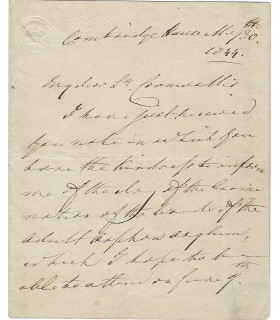 Cambridge House May 30th
1844.
My dear Ld. Cornwallis
I have just received
your note in which you
have the kindness to inform
me of the day of the
nation of the wards of the
adult orphan asylum,
which I hope to be
able to attend on June 9th